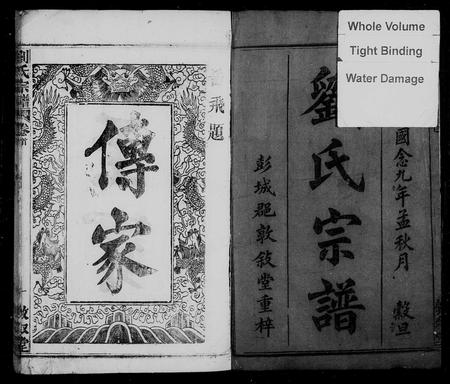 Whole Volume
Tight Binding
Water Damage
國念九年孟秋月 穀旦
劉氏宗譜
彭城郡敦敘堂重梓
飛題
傳家
劉氏宗譜 卷首
敦叙堂